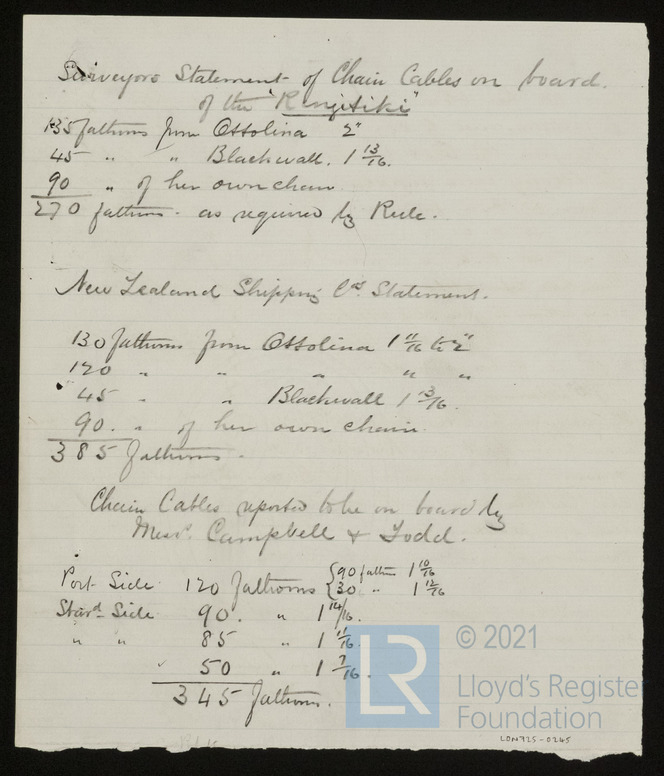 Surveyors Statement of Chain Cables on board.
of the "Rangitiki"
135 fathoms from Ossolina 2"
45 " " Blackwall. 1 13/16.
90 " of her own chain
270 fathoms. as required by Rule.
New Zealand Shipping Cos. Statement.
130 fathoms from Ossolina 1 11/16 to 2"
120 " " " " "
45 " " Blackwall 1 13/16.
90. " of her own chain.
385 fathoms.
Chain Cables reported to be on board by
Messrs. Campbell & Todd.
Port Side 120 fathoms {90 fathom 1 10/16
{30 " 1 12/16
Stard Side 90. " 1 14/16.
" " 85 " 1 11/16.
50 " 1 7/16.
345 fathoms.
© 2021
LR
Lloyd's Register
Foundation
LON725-0265